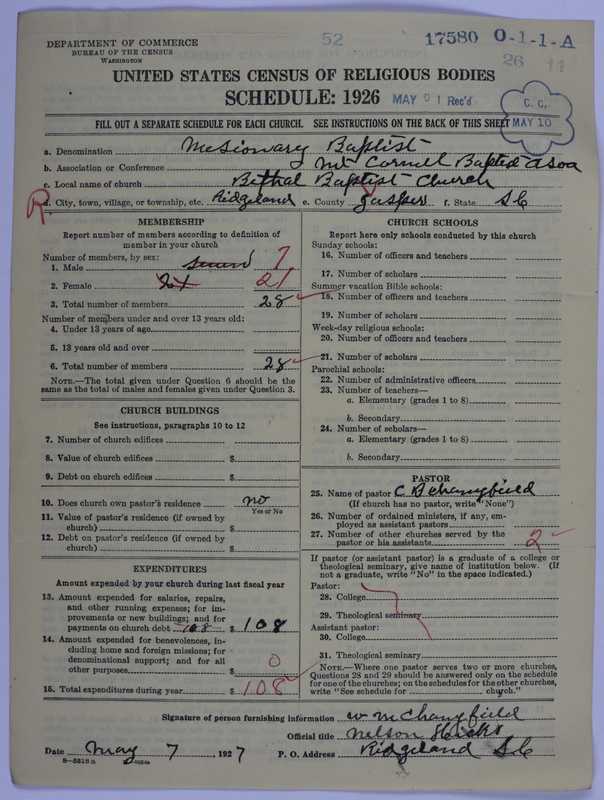 DEPARTMENT OF COMMERCE
BUREAU OF THE CENSUS
WASHINGTON
52
17580 0-1-1-A
26 11
UNITED STATES CENSUS OF RELIGIOUS BODIES
SCHEDULE: 1926
MAY 01 Rec'd
C. C.
MAY 10
FILL OUT A SEPARATE SCHEDULE FOR EACH CHURCH. SEE INSTRUCTIONS ON THE BACK OF THIS SHEET
a. Denomination Mesionary Baptist
b. Association or Conference Mt Cormel Baptist asoa
c. Local name of church Bethal Baptist Church
R d. City, town, village, or township, etc. Ridgeland e. County Jasper f. State S C
MEMBERSHIP
Report number of members according to definition of member in your church
Number of members, by sex:
1. Male 7
2. Female 21 21
3. Total number of members 28
Number of members under and over 13 years old:
4. Under 13 years of age
5. 13 years old and over
6. Total number of members 28
NOTE.—The total given under Question 6 should be the same as the total of males and females given under Question 3.
CHURCH BUILDINGS
See instructions, paragraphs 10 to 12
7. Number of church edifices
8. Value of church edifices $
9. Debt on church edifices $
10. Does church own pastor's residence no
Yes or No
11. Value of pastor's residence (if owned by church) $
12. Debt on pastor's residence (if owned by church) $
EXPENDITURES
Amount expended by your church during last fiscal year
13. Amount expended for salaries, repairs, and other running expenses; for improvements or new buildings; and for payments on church debt 108 $ 108
14. Amount expended for benevolences, including home and foreign missions; for denominational support; and for all other purposes $ 0
15. Total expenditures during year $ 108
CHURCH SCHOOLS
Report here only schools conducted by this church
Sunday schools:
16. Number of officers and teachers
17. Number of scholars
Summer vacation Bible schools:
18. Number of officers and teachers
19. Number of scholars
Week-day religious schools:
20. Number of officers and teachers
21. Number of scholars
Parochial schools:
22. Number of administrative officers
23. Number of teachers—
a. Elementary (grades 1 to 8)
b. Secondary
24. Number of scholars—
a. Elementary (grades 1 to 8)
b. Secondary
PASTOR
25. Name of pastor C B Chanyfield
(If church has no pastor, write "None")
26. Number of ordained ministers, if any, employed as assistant pastors
27. Number of other churches served by the pastor or his assistants 2
If pastor (or assistant pastor) is a graduate of a college or theological seminary, give name of institution below. (If not a graduate, write "No" in the space indicated.)
Pastor:
28. College
29. Theological seminary
Assistant pastor:
30. College
31. Theological seminary
NOTE.—Where one pastor serves two or more churches, Questions 28 and 29 should be answered only on the schedule for one of the churches; on the schedules for the other churches, write "See schedule for church."
Signature of person furnishing information W m Chanyfield
Official title Nelson Hicks
Date May 7, 1927 P. O. Address Ridgeland S C
8—5518a